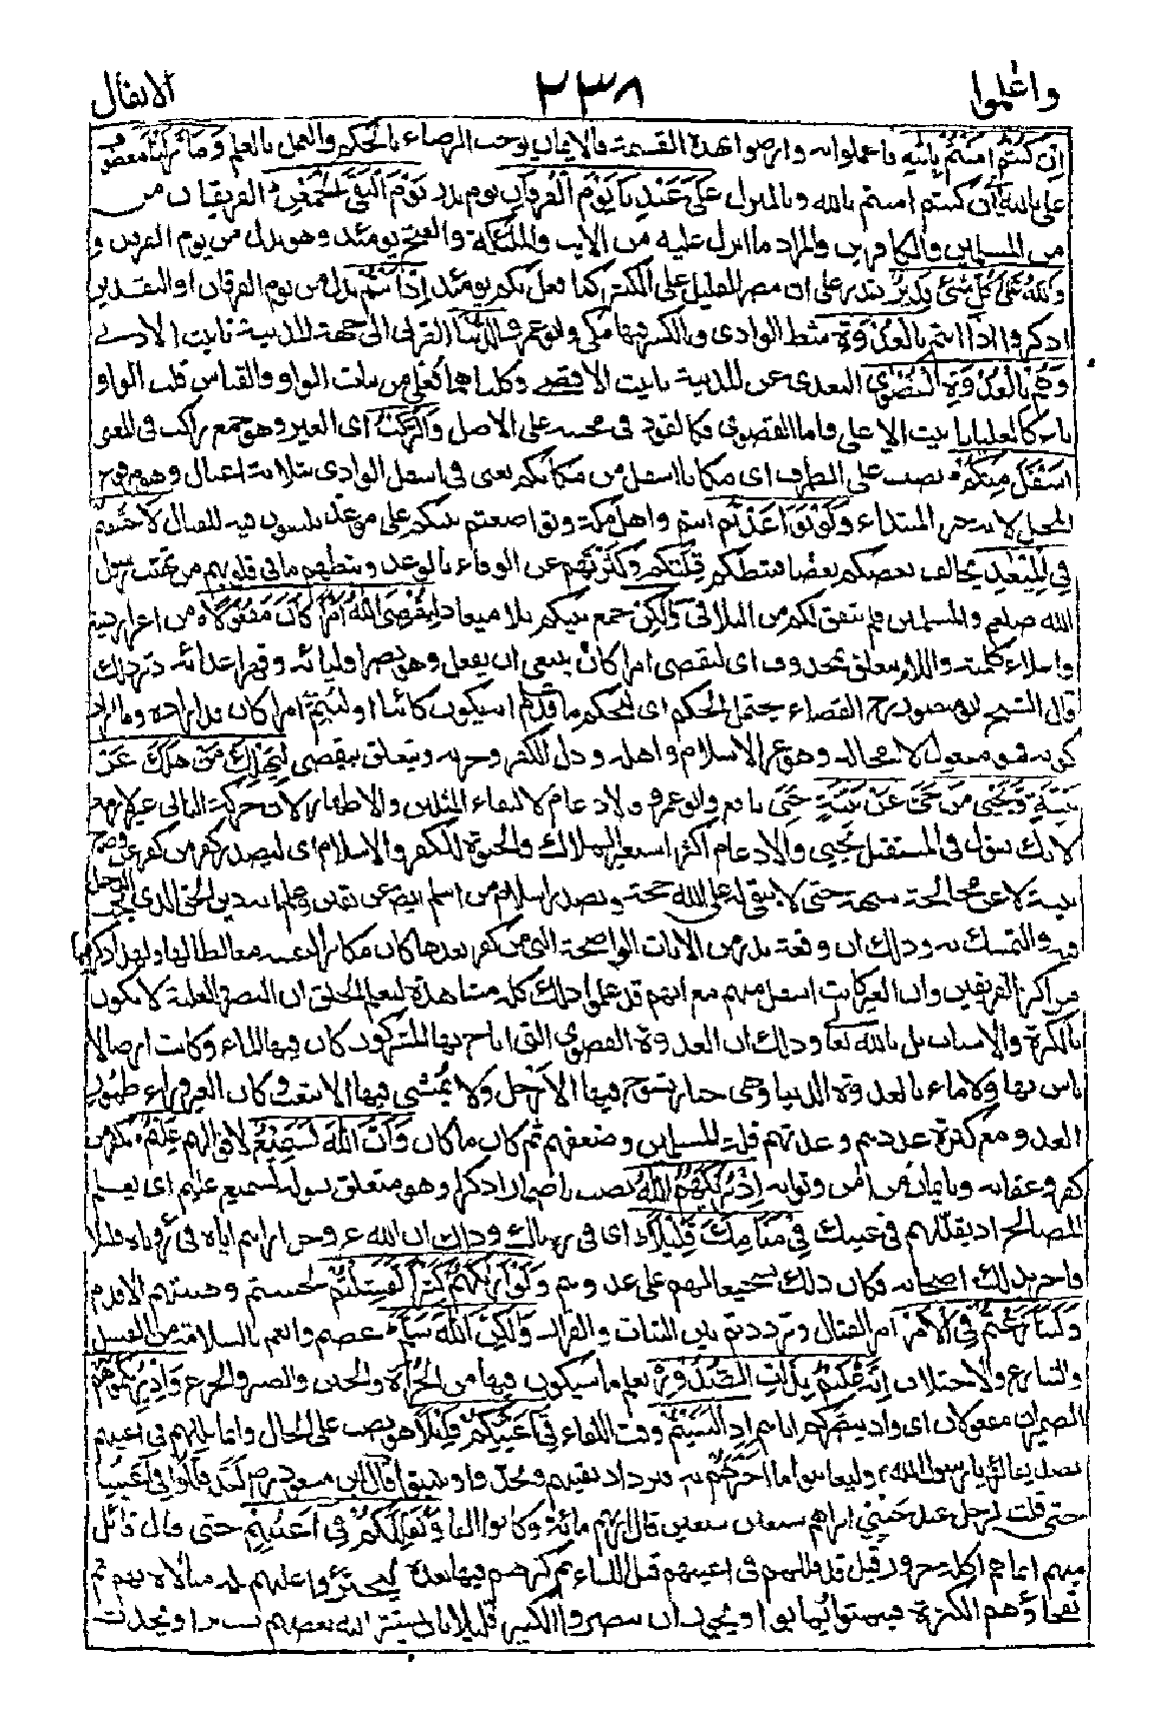 واعلموا ٢٣٨ الانفال
ان كنتم امنتم بالله فاعملوا به وارضوا بهذه القسمة فالايمان يوجب الرضاء بالحكم والعمل بالعلم وما انزلنا معطوف
على بالله اى ان كنتم امنتم بالله وبالمنزل على عبدنا يوم الفرقان يوم بدر يوم التقى الجمعن الفريقان من
من المسلمين والكافرين والمراد ما انزل عليه من الايات والملئكة والفتح يومئذ وهو بدل من يوم الفرقان و
والله على كل شئ قدير يقدر على ان ينصر القليل على الكثير كما فعل بكم يومئذ اذ انتم بدل من يوم الفرقان او التقدير
اذكروا اذ انتم بالعدوة شط الوادى وبالكسر فيهما مكى وابو عمرو الدنيا القربى الى جهة المدينة تانيث الادنى
وهم بالعدوة القصوى البعدى عن المدينة تانيث الاقصى وكلتاهما فعلى من بنات الواو والقياس قلب الواو
ياء كالعليا تانيث الاعلى واما القصوى فكالقود فى مجيئه على الاصل والركب اى العير وهو جمع راكب فى المعنى
اسفل منكم نصب على الظرف اى مكانا اسفل من مكانكم يعنى فى اسفل الوادى بثلاثة اميال وهو مرفوع
المحل لانه خبر المبتداء ولو تواعدتم انتم واهل مكة وتواضعتم بينكم على موعد تلتقون فيه للقتال لاختلفتم
فى الميعد لخالف بعضكم بعضا فثبطكم قلتكم وكثرتهم عن الوفاء بالوعد وثبطهم ما فى قلوبهم من تهيب رسول
الله صلعم والمسلمين فلم يتفق لكم من التلاقى ولكن جمع بينكم بلا ميعاد ليقضى الله امرا كان مفعولا من اعزاز دينه
واعلاء كلمته واللام يتعلق بمحذوف اى ليقضى امرا كان ينبغى ان يفعل وهو نصر اوليائه وقهر اعدائه دبر ذلك
قال الشيخ ابو منصور رح القضاء يحتمل الحكم اى ليحكم ما قد علم انه سيكون كائنا او ليتم امرا كان قد اراده وما اراد
كونه فهو مفعول لا محالة وهو عز الاسلام واهله وذل الكفر وحزبه ويتعلق بيقضى ليهلك من هلك عن
بينة ويحيى من حى عن بينة حيى نافع وابو عمرو فالادغام لالتقاء المثلين والاظهار لان حركة الثانى غير لازمة
لانك تقول فى المستقبل يحيى والادغام اكثر استعير الهلاك والحيوة للكفر والاسلام اى ليصدر كفر من كفر عن وضوح
بينة لا عن مخالجة شبهة حتى لا يبقى له على الله حجة ويصدر اسلام من اسلم ايضا عن يقين وعلم بانه دين الحق الذى يجب الدخول
فيه والتمسك به وذلك ان وقعة بدر من الايات الواضحة التى من كفر بعدها كان مكابرا لنفسه مغالطا لها ولهذا ذكر فيها
مراكز الفريقين وان العير كانت اسفل منهم مع انهم قد علموا ذلك كله مشاهدة ليعلم الخلق ان النصر والغلبة لا تكون
بالكثرة والاسباب بل بالله تعالى وذلك ان العدوة القصوى التى اناخ بها المشركون كان فيها الماء وكانت ارضا لا
باس بها ولا ماء بالعدوة الدنيا وهى خبار تسوخ فيها الارجل ولا يمشى فيها الا بتعب وكان العير وراء ظهور
العدو مع كثرة عددهم وعدتهم وقلة المسلمين وضعفهم ثم كان ما كان وان الله لسميع لاقوالهم عليم بكفر من
كفر وعقابه وبايمان من امن وثوابه اذ يريكهم الله نصب باضمار اذكر او هو متعلق بقوله لسميع عليم اى يعلم
المصالح اذ يقللهم فى عينك فى منامك قليلا اى فى رؤياك وذلك ان الله عز وجل اراهم اياه فى رؤياه قليلا
فاخبر بذلك اصحابه فكان ذلك تشجيعا لهم على عدوهم ولو اريكهم كثيرا لفشلتم لجبنتم وهبتم الاقدام
ولتنازعتم فى الامر امر القتال وترددتم بين الثبات والفرار ولكن الله سلم عصم وانعم بالسلامة من الفشل
والتنازع والاختلاف انه عليم بذات الصدور يعلم ما سيكون فيها من الجرأة والجبن والصبر والجزع واذ يريكموهم
الضميران مفعولان اى واذ يبصركم اياهم اذ التقيتم وقت اللقاء فى اعينكم قليلا هو نصب على الحال وانما قللهم فى اعينهم
تصديقا لرؤيا رسول الله وليعاينوا ما اخبرهم به فيزداد يقينهم ويجدوا ويثبتوا قال ابن مسعود رض لقد قللوا فى اعيننا
حتى قلت لرجل عند جنبى اتراهم سبعين قال اراهم مائة وكانوا الفا ويقللكم فى اعينهم حتى قال قائل
منهم انما هم اكلة جزور قيل قد قللهم فى اعينهم قبل اللقاء ثم كثرهم فيها بعده ليجترؤا عليهم قلة مبالاة بهم ثم
تفجاؤهم الكثرة فيبهتوا ويهابوا ويجوز ان يبصروا الكثير قليلا بان يستر الله بعضهم بساتر او يحدث